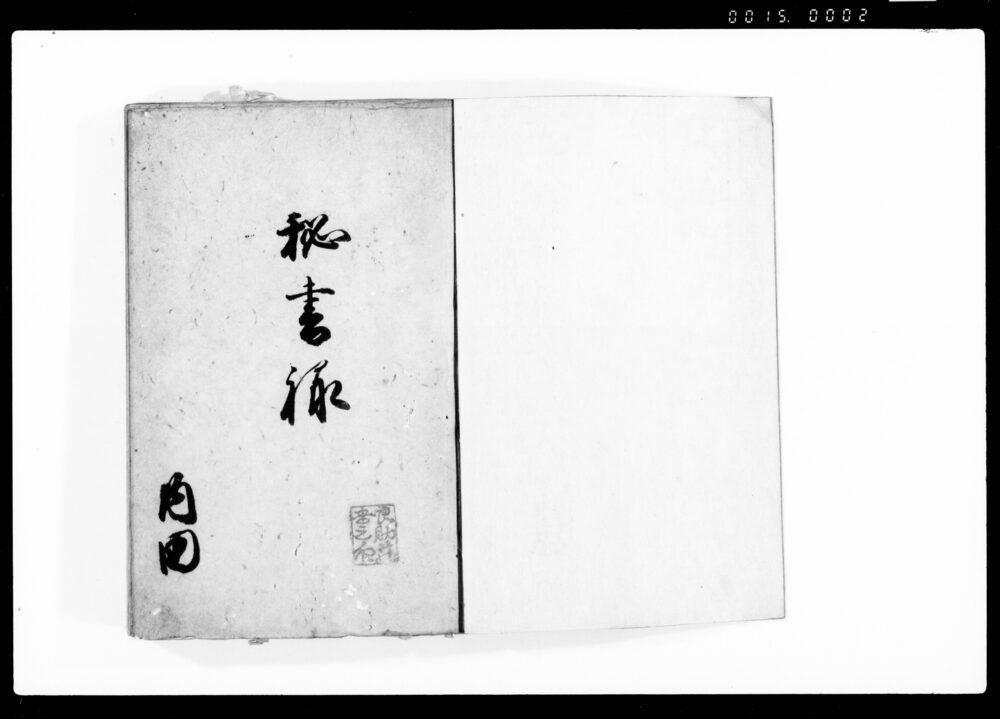 0015. 0002
秘書禄
内田